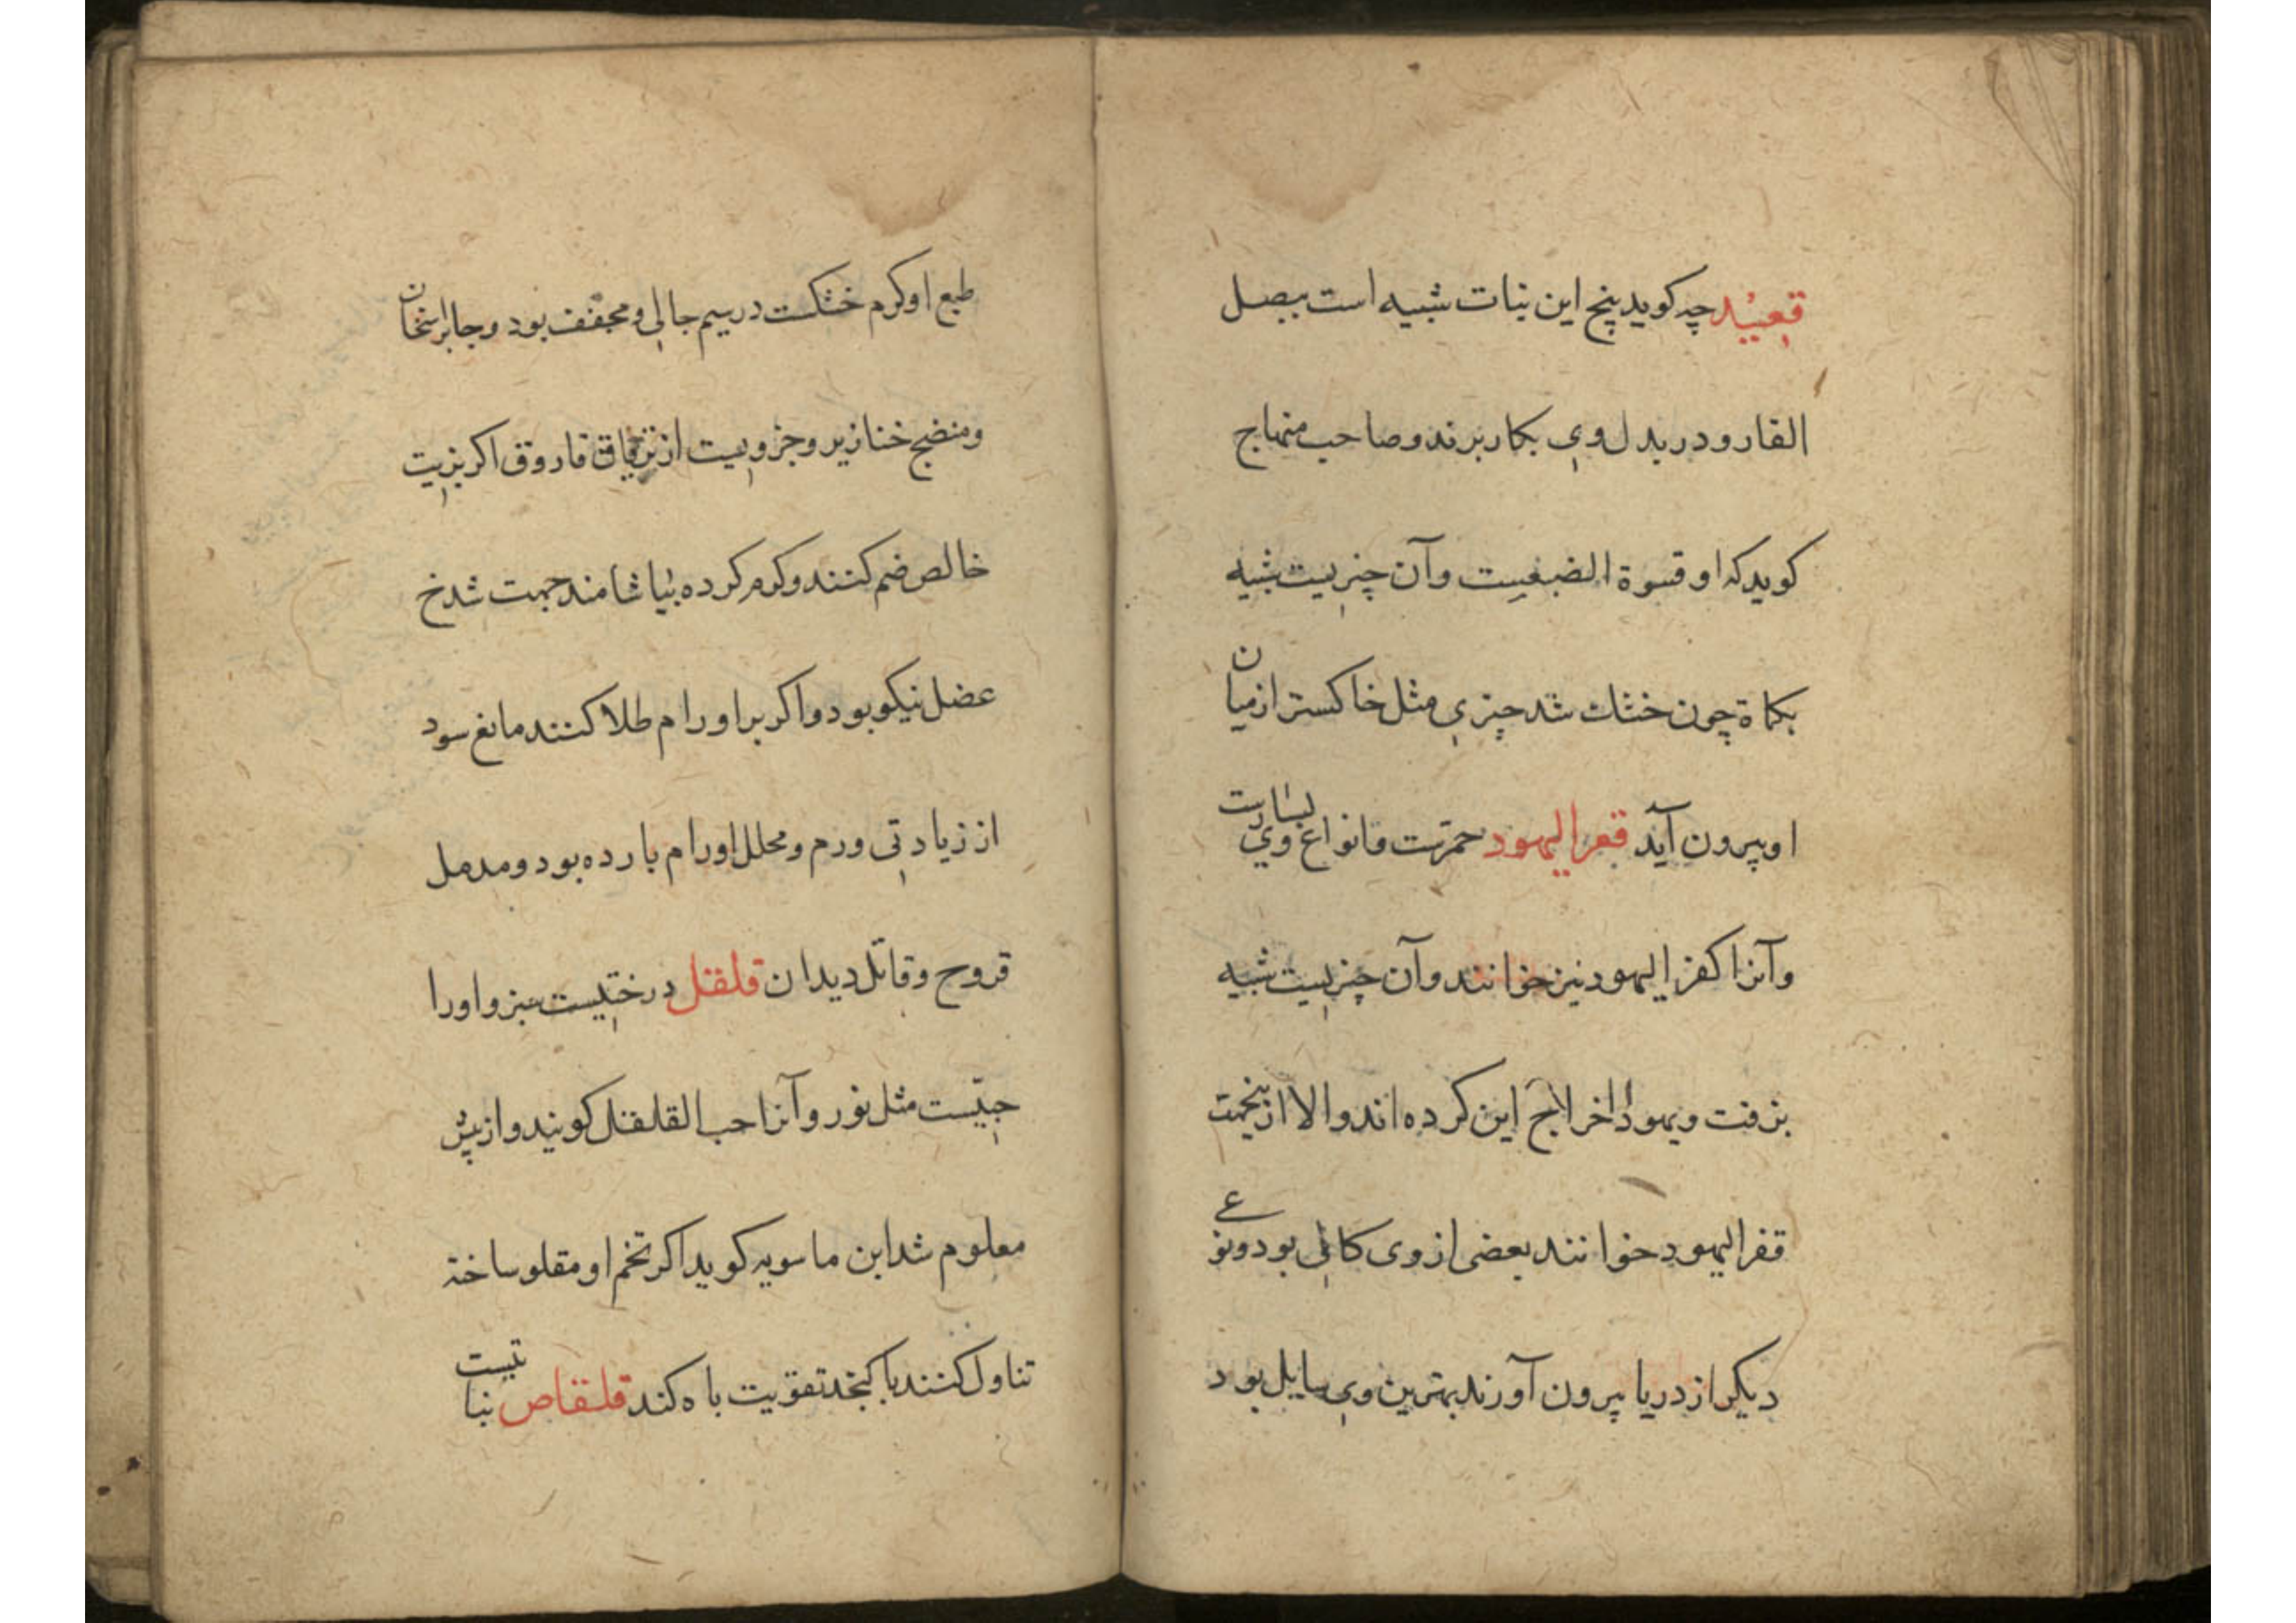 قعیید چه کوید پنج این نبات شبیه است ببصل
القار و در بدل وی بکار برند و صاحب منهاج
کوید که او قسوة الضبغیست وآن چنریست شبیه
بکماة چون خشك شد چیزی مثل خاکستر از میان
او بیرون آید قفر الیهود حمرتست وانواع وي بسیارست
وآنرا کفر الیهود نیز خوانند وآن چنریست شبیه
بزفت ویهود اخراج این کرده اند والا از ینجهت
قفر الیهود خوانند بعضی از وی کانی بود ونوع
دیکر از دریا بیرون آورند بهترین وی سایل بود
طبع او کرم خشکست در سیم جالی ومجفف بود وجابر استخان
ومنضج خنازیر وجزویست از تریاق فاروق اکر بزیت
خالص ضم کنند وکرم کرده بیاشامند جهت شدخ
عضل نیکو بود واکر بر اورام طلا کنند مانع سود
از زیادتی ورم ومحلل اورام بارده بود ومدمل
قروح وقاتل دیدان قلقل درختیست سبز واورا
حبیست مثل نور وآنرا حب القلقل کویند واز پیش
معلوم شد ابن ماسویه کوید اکر تخم او مقلو ساخته
تناول کنند با کنجد تقویت باه کند قلقاص نباتیست